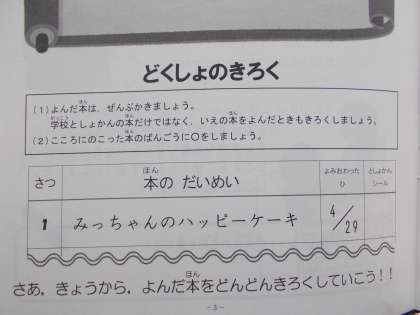 どくしょのきろく
(1)よんだ本は、ぜんぶかきましょう。
学校としょかんの本だけではなく、いえの本をよんだときもきろくしましょう。
(2)こころにのこった本のばんごうに○をしましょう。
さつ 本の だいめい よみおわったひ としょかんシール
1 みっちゃんのハッピーケーキ 4/29
さあ、きょうから、よんだ本をどんどんきろくしていこう!!
-3-